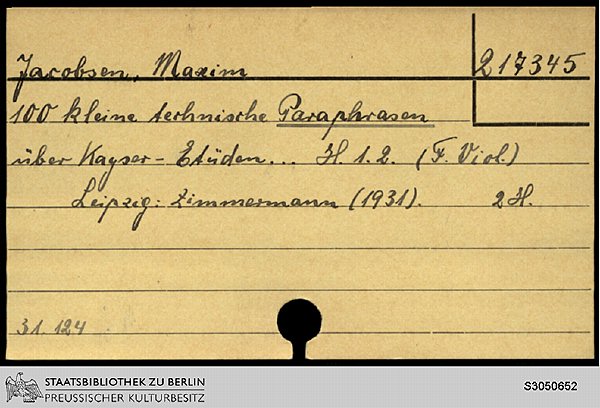 Jacobsen, Maxim
217345
100 kleine technische Paraphrasen
über Kayser-Etüden... H. 1. 2. (F. Viol.)
Leipzig: Zimmermann (1931). 2 H.
31. 124
STAATSBIBLIOTHEK ZU BERLIN
PREUSSISCHER KULTURBESITZ
S3050652